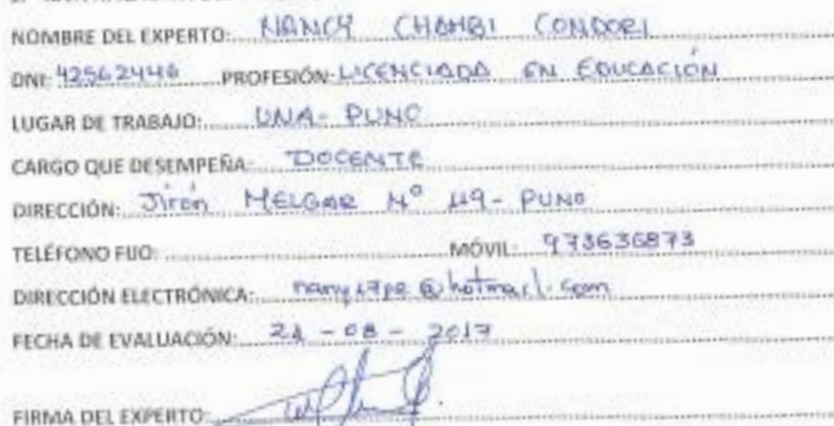 NOMBRE DEL EXPERTO: NANCY CHAMBI CONDORI
DNI: 42562446 PROFESIÓN: LICENCIADA EN EDUCACIÓN
LUGAR DE TRABAJO: UNA - PUNO
CARGO QUE DESEMPEÑA: DOCENTE
DIRECCIÓN: Jirón MELGAR N° 119 - PUNO
TELÉFONO FIJO: MÓVIL: 973636873
DIRECCIÓN ELECTRÓNICA: @hotmail.com
FECHA DE EVALUACIÓN: 21 - 08 - 2017
FIRMA DEL EXPERTO: